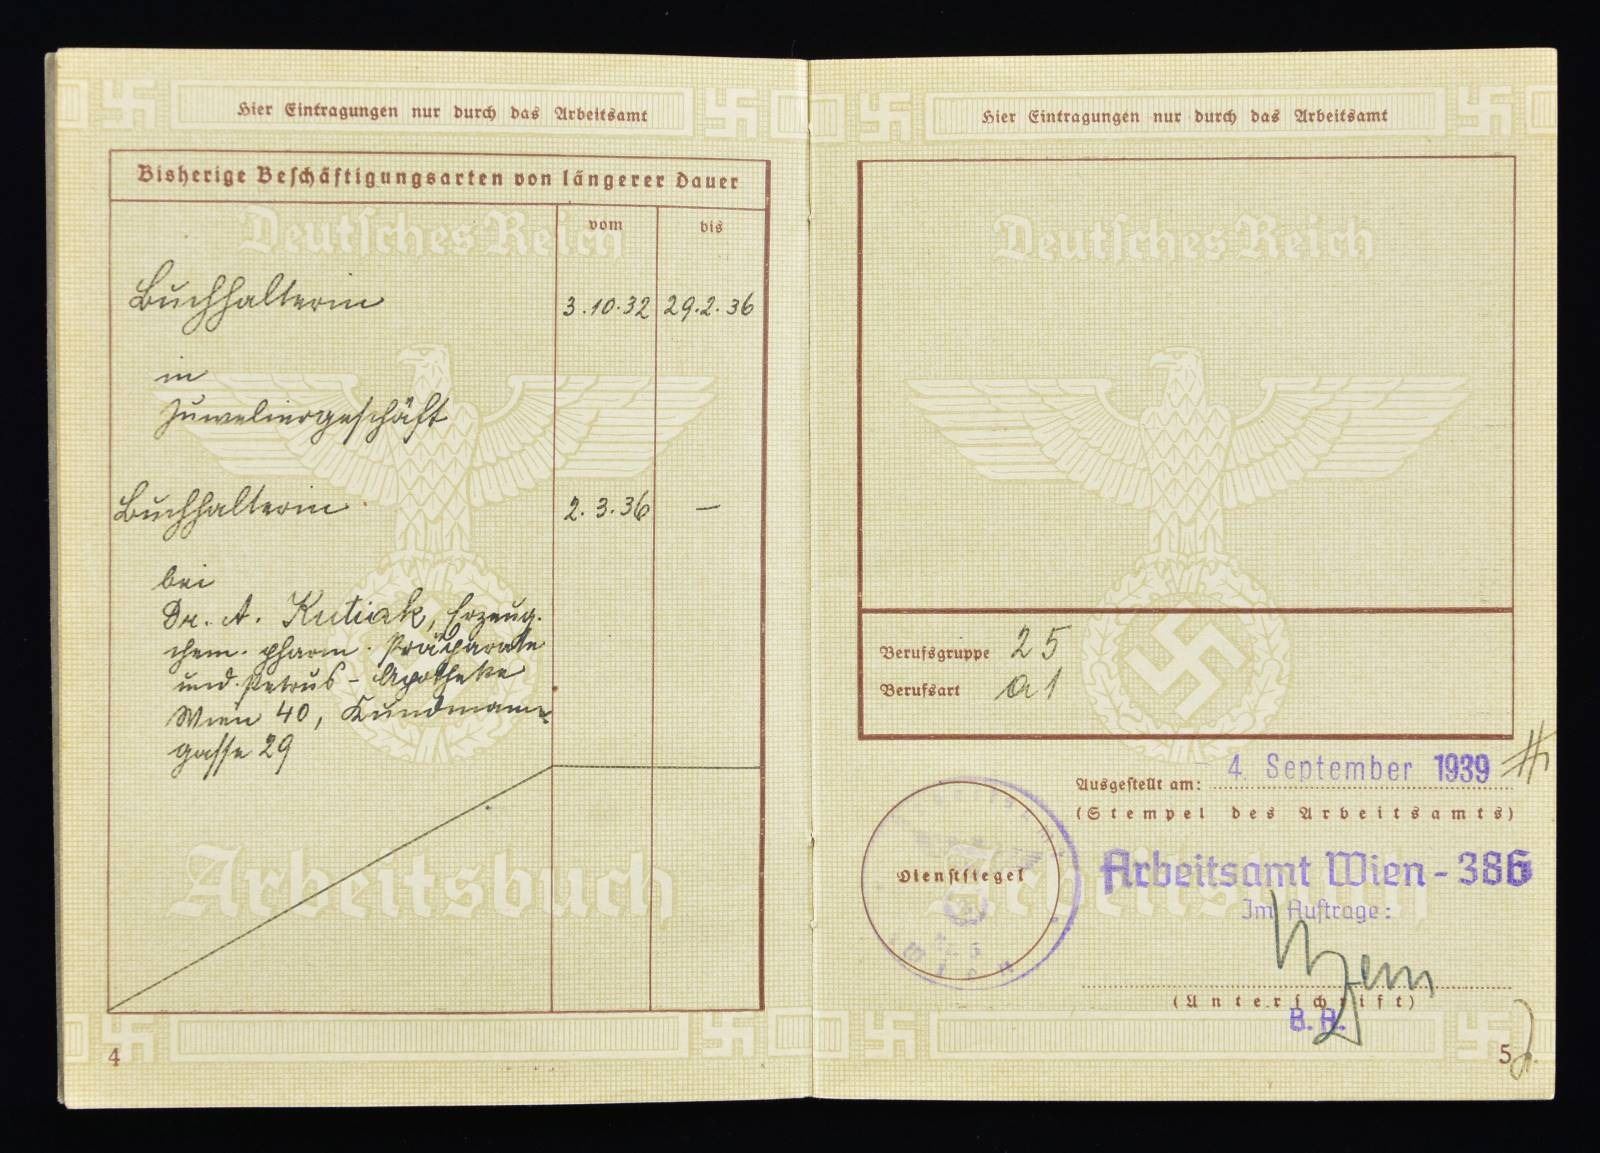 Hier Eintragungen nur durch das Arbeitsamt
Bisherige Beschäftigungsarten von längerer Dauer
vom bis
Deutsches Reich
Buchhalterin 3.10.32 29.2.36
in
Juweliergeschäft
Buchhalterin 2.3.36 –
bei
Dr. A. Kutiak, Erzeug.
chem. pharm. Präparate
und Petrus-Apotheke
Wien 40, Kundmann-
gasse 29
Arbeitsbuch
4
Hier Eintragungen nur durch das Arbeitsamt
Deutsches Reich
Berufsgruppe 25
Berufsart a1
Ausgestellt am: - 4. September 1939
(Stempel des Arbeitsamts)
Dienstsiegel
Wien
Arbeitsamt Wien - 386
Im Auftrage:
(Unterschrift)
B. A.
5